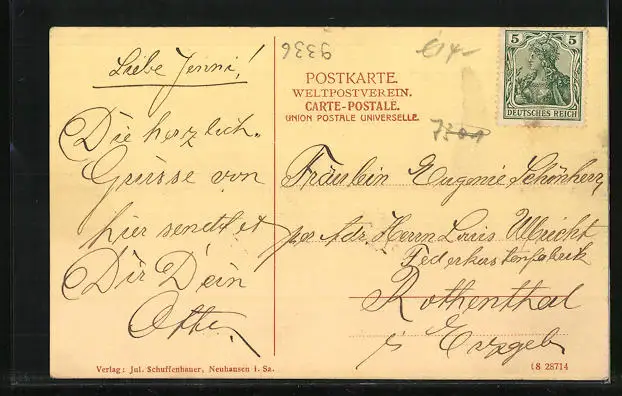 9336
€14-
5
DEUTSCHES REICH
POSTKARTE.
WELTPOSTVEREIN.
CARTE-POSTALE.
UNION POSTALE UNIVERSELLE.
Liebe Jenni!
Die herzlich.
Grüsse von
hier sendtet
Dir Dein
Otto.
Fräulein Eugenie Schönherr
per Adr. Herrn Louis Ulbricht
Federkastenfabrik
Rothenthal
i/ Erzgeb
Verlag: Jul. Schuffenhauer, Neuhausen i. Sa.
18 28714